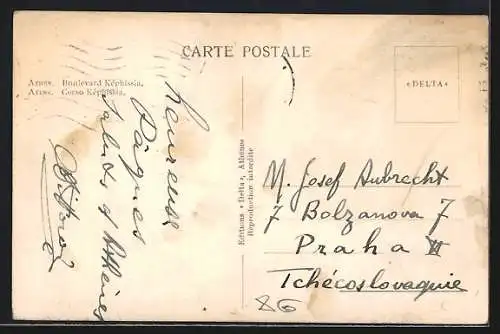 CARTE POSTALE
ΑΘΗΝ. Boulevard Képhissia.
ATENE. Corso Képhissia.
«DELTA»
heureuse
Pâques
Saluts d'Athènes
Editions «Delta», Athènes
Réproduction interdite
M. Josef Aubrecht
7 Bolzanova 7
Praha II
Tchécoslovaquie
86